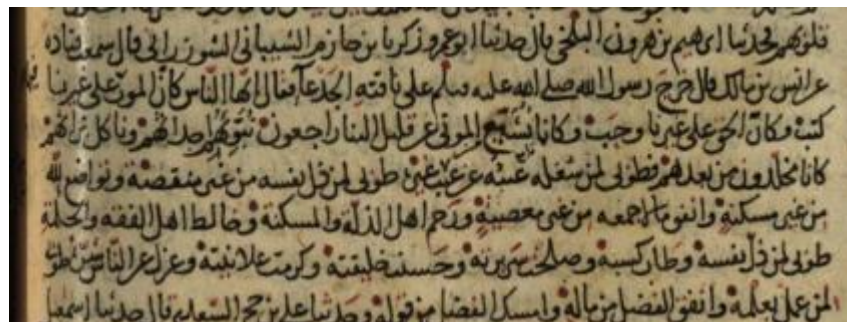 قلوبهم وحدثنا ابرهيم بن هرون البلخي قال حدثنا ابو عمرو زكريا بن حازم الشيباني السوزراني قال سمعت قتاده
عن انس بن مالك قال خرج رسول الله صلى الله عليه وسلم على ناقته الجدعآ فقال ايها الناس كان الموت على غيرنا
كتب وكان الحق على غيرنا وجب وكانما نشيع من الموتى عن قليل الينا راجعون نبويهم اجداثهم وناكل تراثهم
كانا مخلدون من بعدهم فطوبى لمن شغله عيبه عن عيب غيره طوبى لمن ذل نفسه من غير منقصة وتواضع لله
من غير مسكنة وانفق مالا جمعه من غير معصية ورحم اهل الذلة والمسكنة وخالط اهل الفقه والحكمة
طوبى لمن ذل نفسه وطاب كسبه وصلحت سريرته وحسنت خليقته وكرمت علانيته وعزل عن الناس شره طوبى
لمن عمل بعلمه وانفق الفضل من ماله وامسك الفضل من قوله وحدثنا علي بن حجر السعدي قال حدثنا اسمعيل